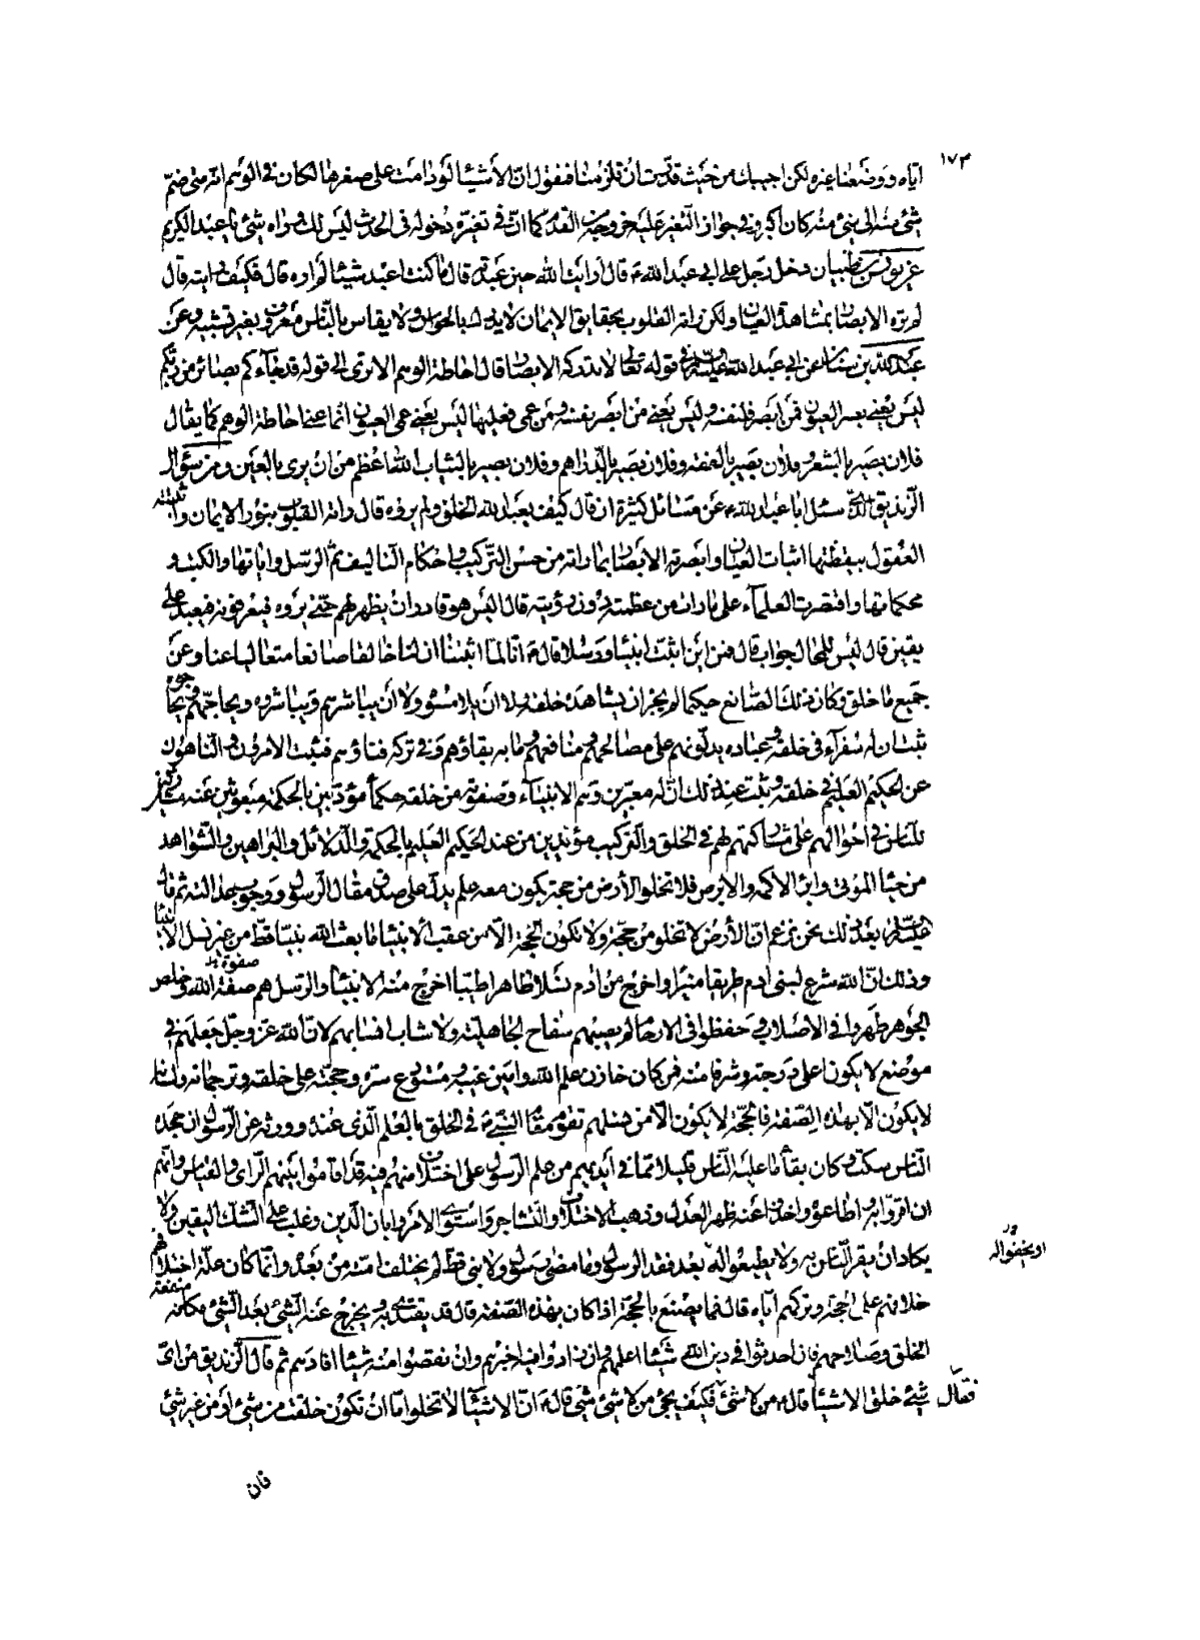 ١٧٣
اياه ووضعنا غيره لكن اجيبك من حيث قدرت ان تلزمنا فنقول ان الاشياء لو دامت على صغرها لكان في الوهم انه متى ضم
شئ منه الى شئ منه كان اكبر وفي جواز التغير عليه خروجه من القدم كما ان في تغيره دخوله في الحدث ليس لك وراه شئ يا عبد الكريم
دخل رجل على ابي عبد الله ع قال ارايت الله حين عبدته قال ما كنت اعبد شيئا لم اره قال فكيف رايته قال
لم تره الابصار بمشاهدة العيان ولكن راته القلوب بحقايق الايمان لا يدرك بالحواس ولا يقاس بالناس معروف بغير تشبيه وعن
عبد الله بن سنان عن ابي عبد الله عليه السلام في قوله تعالى لا تدركه الابصار قال احاطة الوهم الا ترى الى قوله قد جاءكم بصائر من ربكم
ليس يعني بصر العيون فمن ابصر فلنفسه وليس يعني من ابصر بنفسه ومن عمي فعليها ليس يعني عمى العيون انما عنى احاطة الوهم كما يقال
فلان بصير بالشعر وفلان بصير بالفقه وفلان بصير بالدراهم وفلان بصير بالثياب الله اعظم من ان يرى بالعين ومن سؤال
الزنديق الذي سئل ابا عبد الله ع عن مسائل كثيرة ان قال كيف يعبد الله الخلق ولم يروه قال راته القلوب بنور الايمان واثبتته
العقول بيقظتها اثبات العيان وابصرته الابصار بما راته من حسن التركيب واحكام التاليف ثم الرسل واياتها والكتب و
محكماتها واقتصرت العلماء على ما رات من عظمته دون رؤيته قال اليس هو قادر ان يظهر لهم حتى يروه فيعرفونه فيعبد على
يقين قال ليس للمحال جواب قال فمن اين اثبت انبياء ورسلا قال ع انا لما اثبتنا ان لنا خالقا صانعا متعاليا عنا وعن
جميع ما خلق وكان ذلك الصانع حكيما لم يجز ان يشاهده خلقه ولا ان يلامسوه ولا ان يباشرهم ويباشروه ويحاجهم ويحاجوه
ثبت ان له سفراء في خلقه وعباده يدلونهم على مصالحهم ومنافعهم وما به بقاؤهم وفي تركه فناؤهم فثبت الامرون والناهون
عن الحكيم العليم في خلقه وثبت عند ذلك ان له معبرين وهم الانبياء وصفوته من خلقه حكماء مؤدبين بالحكمة مبعوثين عنه مشاركين
للناس في احوالهم على مشاركتهم لهم في الخلق والتركيب مؤيدين من عند الحكيم العليم بالحكمة والدلائل والبراهين والشواهد
من احياء الموتى وابراء الاكمه والابرص فلا تخلو الارض من حجة يكون معه علم يدل على صدق مقال الرسول ووجوب عدالته ثم قال
عليه السلام بعد ذلك نحن نزعم ان الارض لا تخلو من حجة ولا تكون الحجة الا من عقب الانبياء ما بعث الله نبيا قط من غير نسل الانبياء
وذلك ان الله شرع لبني ادم طريقا منيرا واخرج من ادم نسلا طاهرا طيبا اخرج منه الانبياء والرسل هم صفوة الله وخلص
الجوهر طهروا في الاصلاب وحفظوا في الارحام لم يصبهم سفاح الجاهلية ولا شاب انسابهم لان الله عز وجل جعلهم في
موضع لا يكون اعلى درجة وشرفا منه فمن كان خازن علم الله وامين غيبه ومستودع سره وحجته على خلقه وترجمانه ولسانه
لا يكون الا بهذه الصفة فالحجة لا يكون الا من نسلهم تقوم مقام النبي ص في الخلق بالعلم الذي عنده وورثه عن الرسول ان جحده
الناس سكت وكان بقاء ما عليه الناس قليلا مما في ايديهم من علم الرسول على اختلاف منهم فيه قد اقاموا بينهم الراي والقياس وانهم
ان اقروا به واطاعوه واخذوا عنه ظهر العدل وذهب الاختلاف والتشاجر واستوى الامر وابان الدين وغلب على الشك اليقين ولا
يكاد ان يقر الناس به ولا يطيعوا له بعد فقد الرسول وما مضى رسول ولا نبي قط لم يختلف امته من بعده وانما كان علة اختلافهم
او يحفظوا له
خلافهم على الحجة وتركهم اياه قال فما يصنع بالحجة اذا كان بهذه الصفة قال قد يقتدى به ويخرج عنه الشئ بعد الشئ مكانه منفعة
الخلق وصلاحهم فان احدثوا في دين الله شيئا اعلمهم وان زادوا فيه اخبرهم وان نقصوا منه شيئا افادهم ثم قال الزنديق من اي
شئ خلق الاشياء قال ع من لا شئ فقال فكيف يجئ من لا شئ شئ قال ع ان الاشياء لا تخلو اما ان تكون خلقت من شئ او من غير شئ
فان